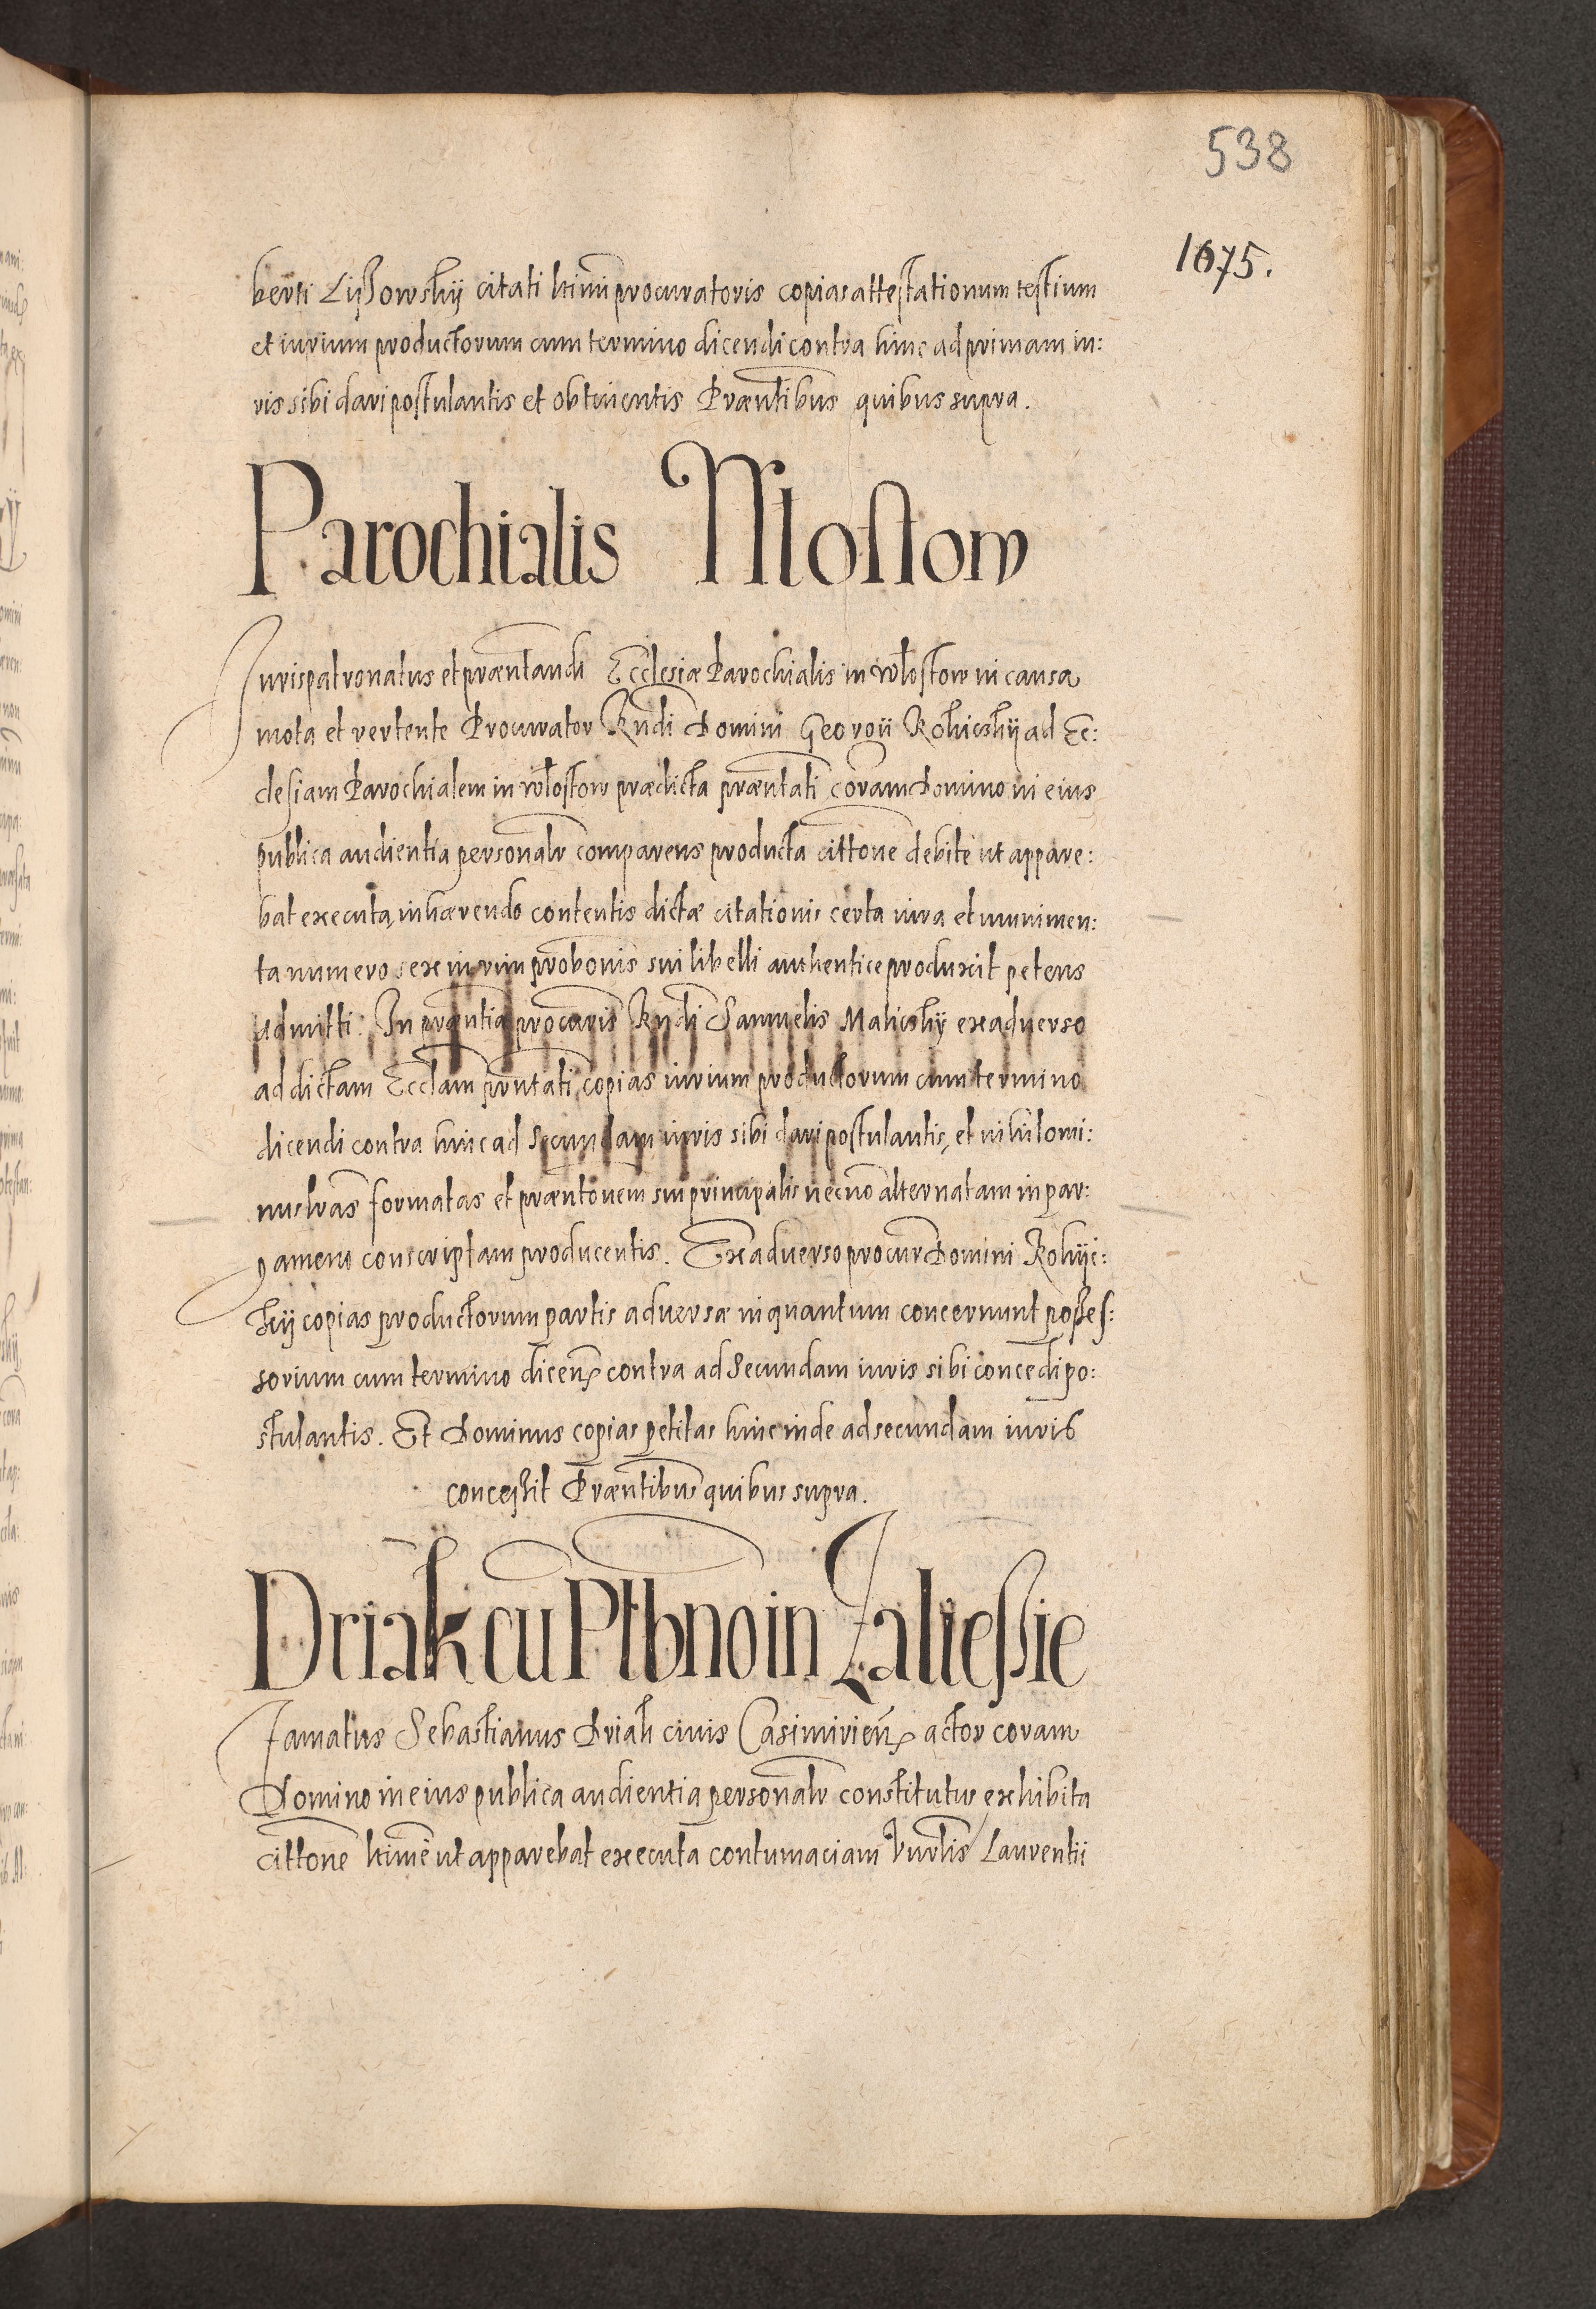 538
1075.
berti Lisſowskij citati ltimi procuratoris copias attestationum testium
et iurium productorum cum termino dicendi contra hinc ad primam iu:
ris sibi dari postulantis et obtinentis Præntibus quibus supra.
Parochialis Wlostow
Jurispatronatus et præntandi Ecclesiæ Parochialis in Wlostow in causa
mota et vertente Procurator Rndi Domini Georgii Rokicskij ad Ec:
clesiam Parochialem in Wlostow prædicta præntati coram Domino in eius
publica audientia personalr comparens producta cittone debite ut appare:
bat executa, inhærendo contentis dictæ citationis certa iura et munimen:
ta numero sex in vim probonis sui libelli authentice produxit petens
admitti. In præntia procuris Rndi Samuelis Malicskij ex adverso
ad dictam Eccliam prntati, copias iurium productorum cum termino
dicendi contra hinc ad secundam iuris sibi dari postulantis, et nihilomi:
nus lras formatas et præntonem sui principalis necno alternatam in par:
gameno conscriptam producentis. Ex adverso procur Domini Rokijc:
skij copias productorum partis adversæ in quantum concernunt posses:
sorium cum termino dicen contra ad secundam iuris sibi concedi po:
stulantis. Et Dominus copias petitas hinc inde ad secundam iuris
concessit Præntibus quibus supra.
Driak cu Ptbno in Zaliessie
Famatus Sebastianus Driak civis Casimirien actor coram
Domino in eius publica audientia personalr constitutus exhibita
cittone ltime ut apparebat executa contumaciam Laurentii